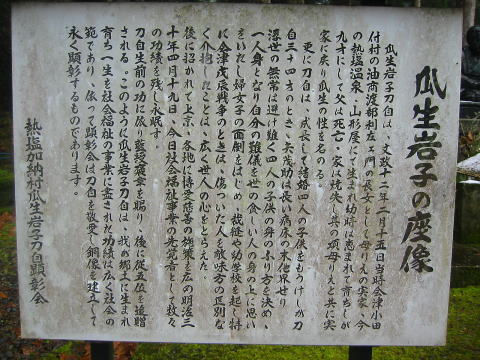 瓜生岩子の座像
瓜生岩子刀自は、文政十二年二月十五日当時会津小田
付村の油商渡部利左ェ門の長女として母りえの実家、今
の熱塩温泉、山形屋にて生まれ幼時は恵まれて育ちしが
九才にして父は死亡、家は焼失し其の頃母りえと共に実
家に戻り瓜生の性を名のる。
更に刀自は、成長して結婚四人の子供をもうけしが刀
自三十四才のとき、夫茂助は長い病床の末他界せり
浮世の無常は避け難く四人の子供の身のふり方を決め、
一人身となり自分の難儀を世の貧しい人の身の上に思い
をいたし、婦女子の面倒をはじめ、裁縫や幼学校を起し特
に会津戊辰戦争のときは、傷ついた人を敵味方の区別な
く介抱したことは、広く世人の心をとらえた。
後に招かれて上京、各地に博愛慈善の施策を広め明治三
十年四月十九日、今日社会福祉事業の先覚者として数々
の功績を残して永眠す。
刀自生前の功に依り藍綬褒章を賜り、後に従五位を追贈
される。このように瓜生岩子刀自は、我が郷土に生まれ
育ち一生を社会福祉の事業に盡された功績は広く社会の
範であり、依って顕彰会は刀自を敬愛し銅像を建立して
永く顕彰するものであります。
熱塩加納村瓜生岩子刀自顕彰会